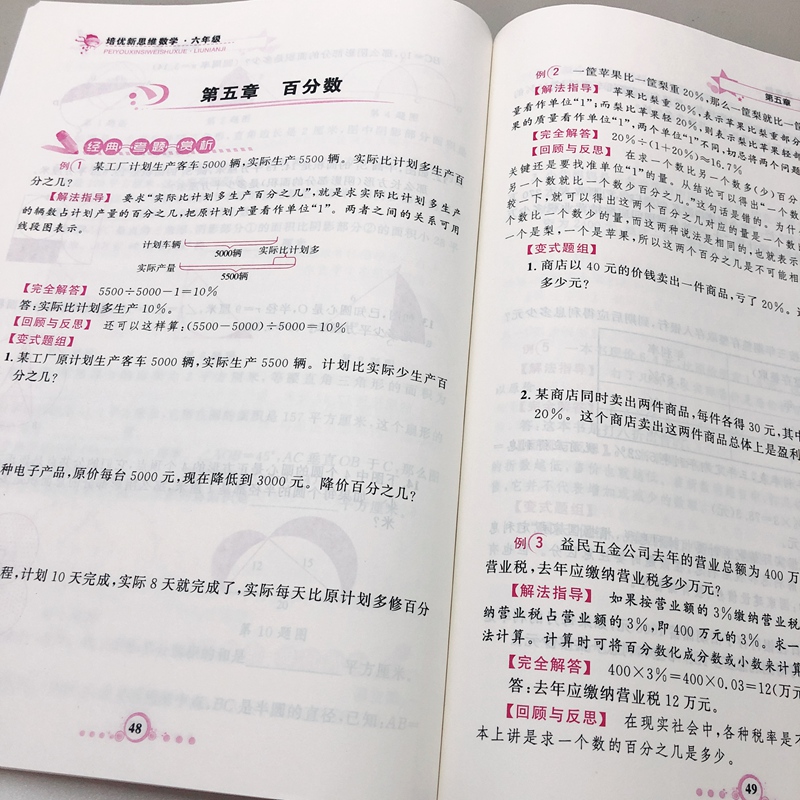 培优新思维数学·六年级
PEIYOUXINSIWEISHUXUE·LIUNIANJI
第五章 百分数
经典考题赏析
例1 某工厂计划生产客车5000辆,实际生产5500辆。实际比计划多生产百
分之几?
【解法指导】 要求“实际比计划多生产百分之几”,就是求实际比计划多生产
的辆数占计划产量的百分之几,把原计划产量看作单位“1”。两者之间的关系可用
线段图表示。
计划车辆 5000辆 实际比计划多
实际产量 5500辆
【完全解答】 5500÷5000-1=10%
答:实际比计划多生产10%。
【回顾与反思】 还可以这样算:(5500-5000)÷5000=10%
【变式题组】
1. 某工厂原计划生产客车5000辆,实际生产5500辆。计划比实际少生产百
分之几?
种电子产品,原价每台5000元,现在降低到3000元。降价百分之几?
程,计划10天完成,实际8天就完成了,实际每天比原计划多修百分
48
第五章
例2 一筐苹果比一筐梨重20%,那么一筐梨就比一
【解法指导】 苹果比梨重20%,表示苹果比梨重部分
量看作单位“1”;而梨比苹果轻20%,则表示梨比苹果轻部
果的质量看作单位“1”,两个单位“1”不同,切忌将两个问题
【完全解答】 20%÷(1+20%)≈16.7%
【回顾与反思】 在求一个数比另一个数多(少)百分
关键还是要找准单位“1”的量。从结论可以得出“一个数
另一个数就比一个数少百分之几。”这句话是错的。为什
较一下,就可以得出这两个百分之几对应的量是一个数比
个数比一个数少的量,而这两种说法是相同的,也就表示
一个是梨,一个是苹果,所以这两个百分之几是不可能相
【变式题组】
1. 商店以40元的价钱卖出一件商品,亏了20%。
多少元?
2. 某商店同时卖出两件商品,每件各得30元,其中
20%。这个商店卖出这两件商品总体上是盈利
例3 益民五金公司去年的营业总额为400万
营业税,去年应缴纳营业税多少万元?
【解法指导】 如果按营业额的3%缴纳营业税
纳营业税占营业额的3%,即400万元的3%。求一
法计算。计算时可将百分数化成分数或小数来计算
【完全解答】 400×3%=400×0.03=12(万
答:去年应缴纳营业税12万元。
【回顾与反思】 在现实社会中,各种税率是
本上讲是求一个数的百分之几是多少。
49